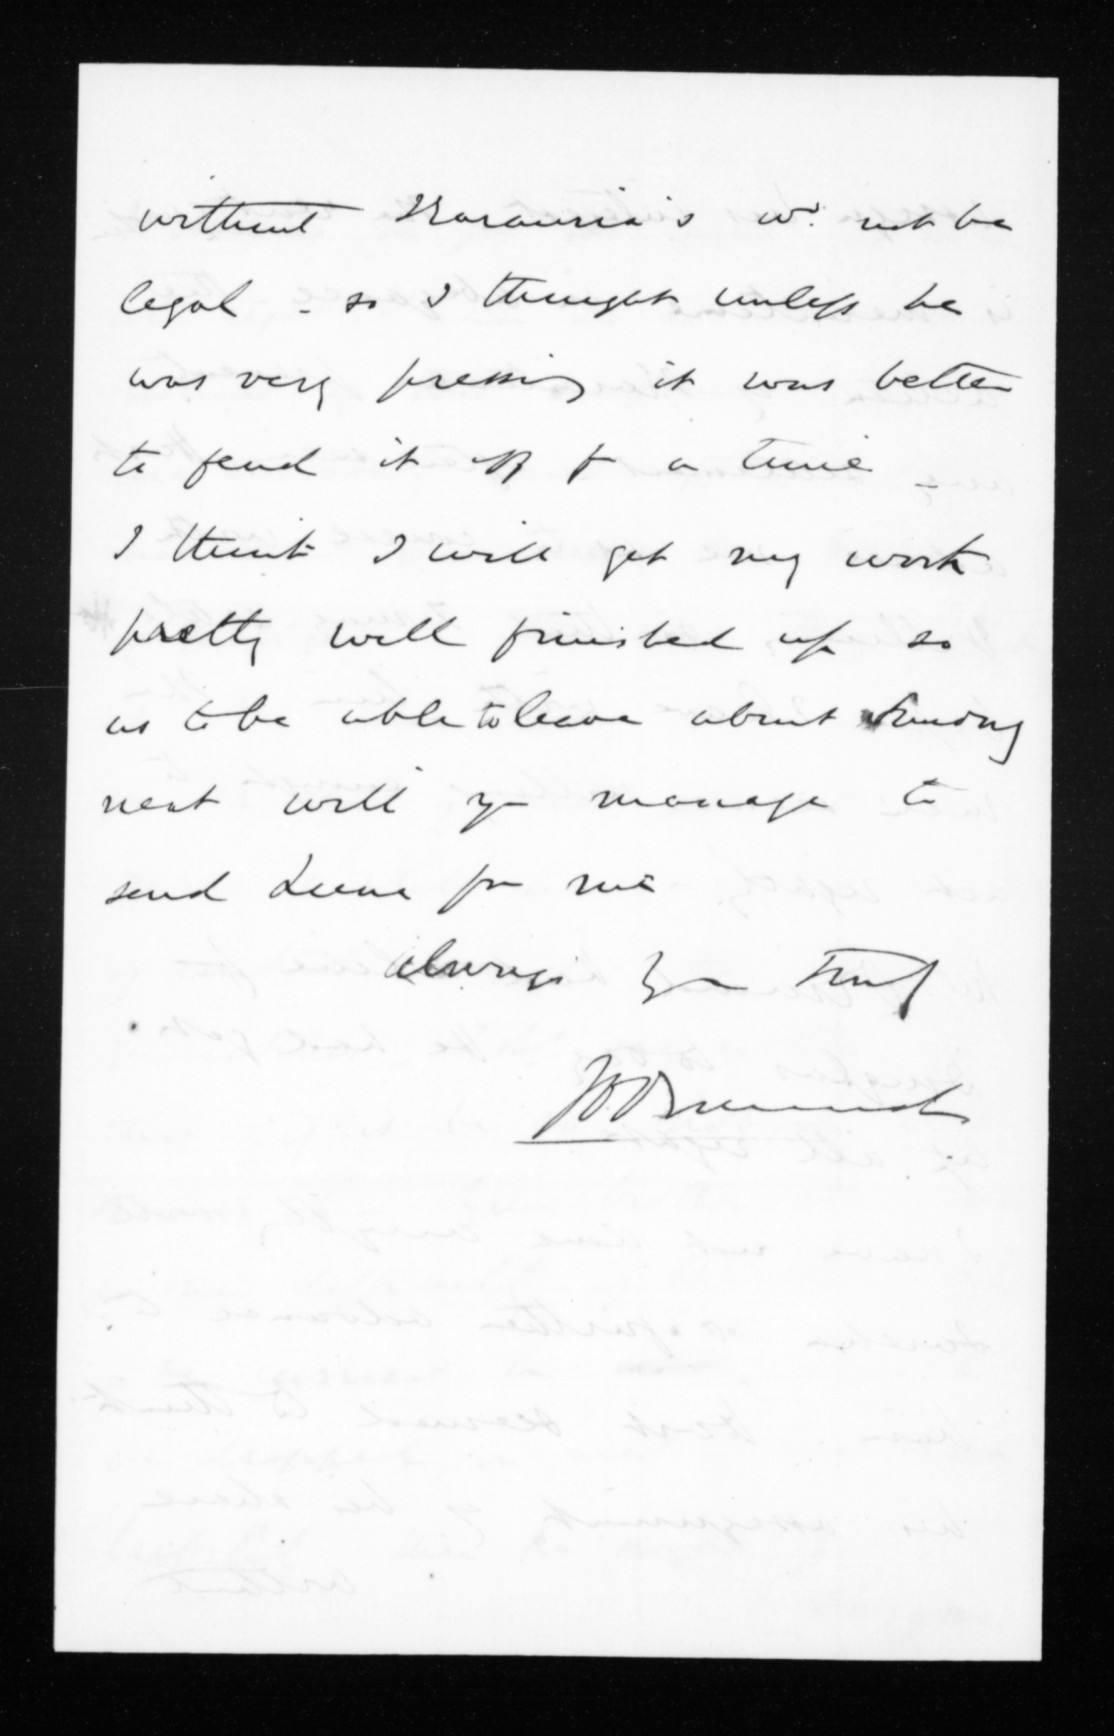 without Karauria's wd. not be
legal - so I thought unless he
was very pressing it was better
to fend it off for a time -
I think I will get my work
pretty well finished up so
as to be able to leave about Sunday
next will you manage to
send for me
always yrs truly